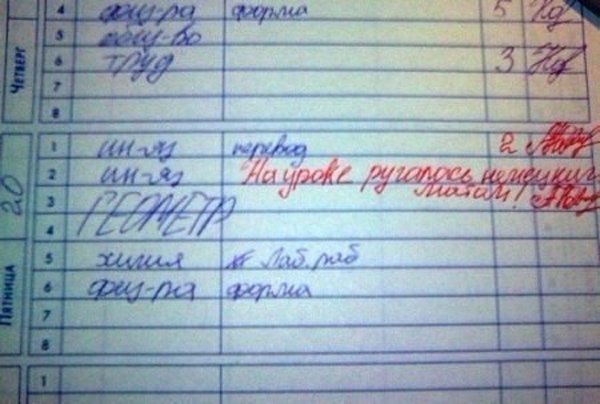 4 физ-ра форма 5
5 общ-во
6 труд 3
7
8
ЧЕТВЕРГ
1 ин-яз перевод 2
2 ин-яз На уроке ругалось немецким
3 ГЕОМЕТР матом!
4
5 химия Лаб. раб
6 физ-ра форма
7
8
20
ПЯТНИЦА
1